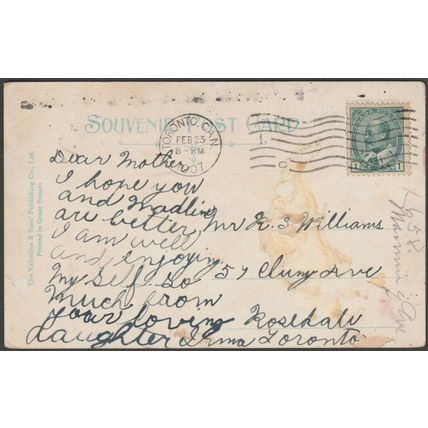 SOUVENIR POST CARD
TORONTO, CAN
FEB 23
6-PM
1907
The Valentine & Sons' Publishing Co., Ltd.
Printed in Great Britain
Dear Mother
I hope you
and Madline
are better,
I am well
and enjoying
My self so
much from
your loving
daughter Irma
Mr R. S Williams
57 Cluny Ave
Rosehale
Toronto